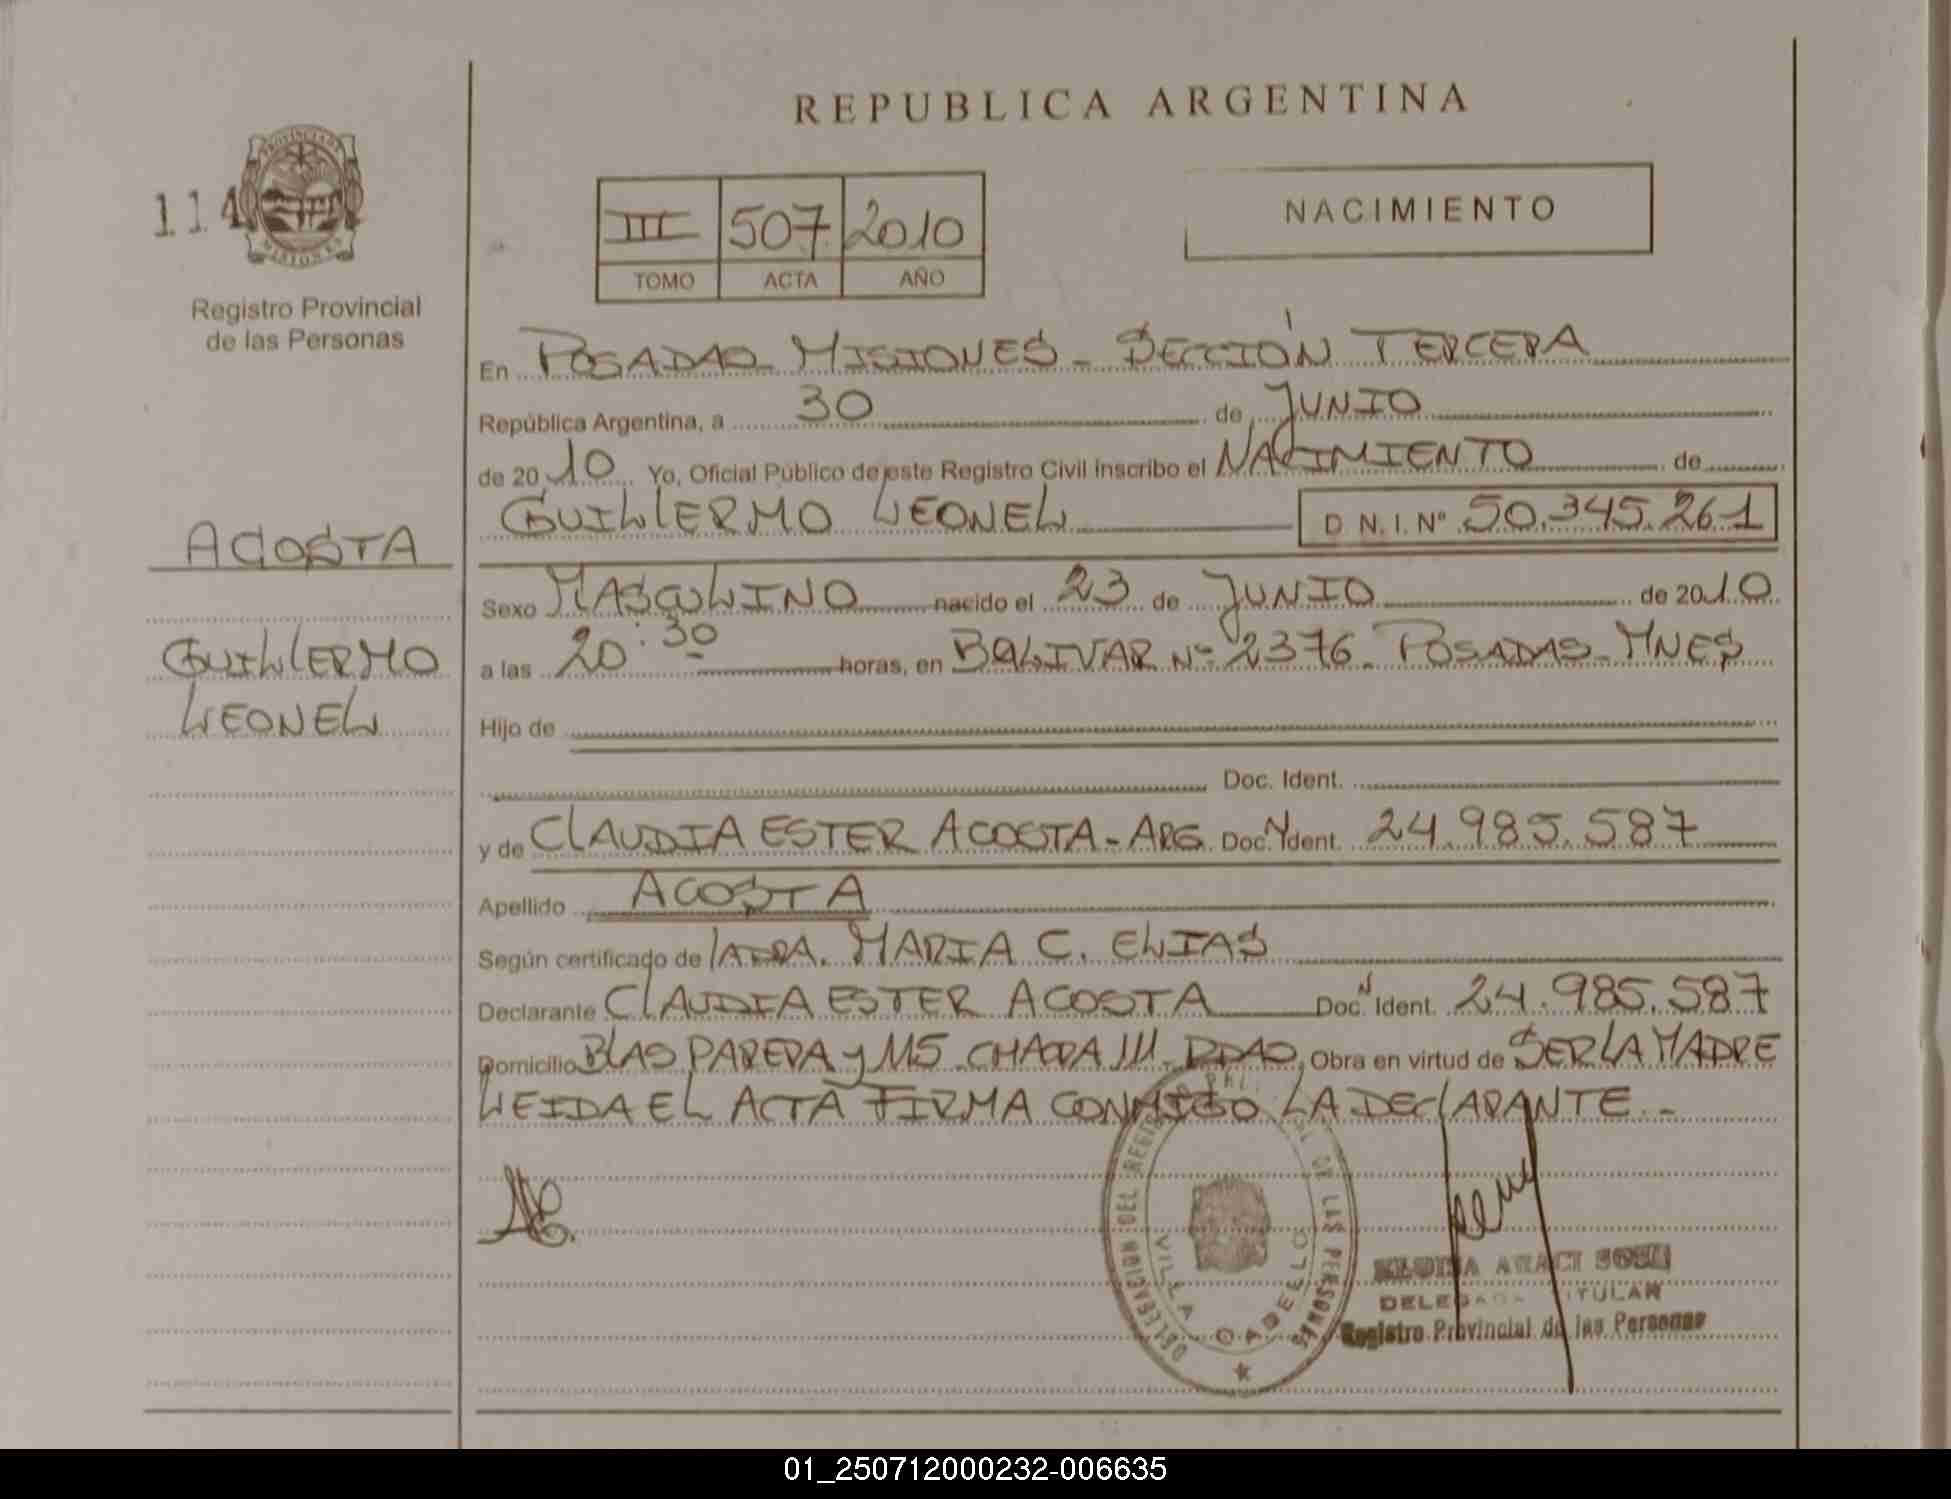 REPUBLICA ARGENTINA
114
PROVINCIA DE
MISIONES
Registro Provincial
de las Personas
III 507 2010
TOMO ACTA AÑO
NACIMIENTO
En POSADAS MISIONES - SECCIÓN TERCERA
República Argentina, a 30 de JUNIO
de 2010 Yo, Oficial Público de este Registro Civil inscribo el NACIMIENTO de
GUILLERMO LEONEL D.N.I. Nº 50.345.261
ACOSTA
GUILLERMO
LEONEL
Sexo MASCULINO nacido el 23 de JUNIO de 2010
a las 20:30 horas, en BOLIVAR Nº 2376 POSADAS - MNES
Hijo de
Doc. Ident.
y de CLAUDIA ESTER ACOSTA - ARG. Doc. N Ident. 24.985.587
Apellido ACOSTA
Según certificado de MARIA C. ELIAS
Declarante CLAUDIA ESTER ACOSTA Doc. N Ident. 24.985.587
Domicilio BLAS PARERA y 115 CHACRA Obra en virtud de SER LA MADRE
LEIDA EL ACTA FIRMA CONMIGO LA DECLARANTE. -
DELEGACION DEL REGISTRO DE LAS PERSONAS
VILLA CABELLO
DELEGADA TITULAR
Registro Provincial de las Personas
01_250712000232-006635